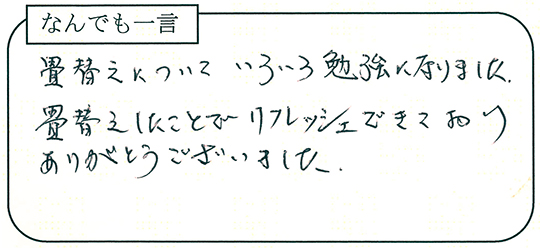 なんでも一言
畳替えについて いろいろ勉強になりました.
畳替えしたことでリフレッシュできており
ありがとうございました.